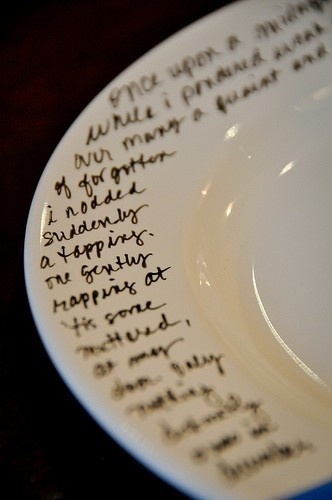 once upon a midnigh
while i pondered weak
over many a quaint and
of forgotten
i nodded
suddenly
a tapping.
one gently
rapping at
'tis some
muttered,
at my
door. only
nothing
distinctly
was in
December